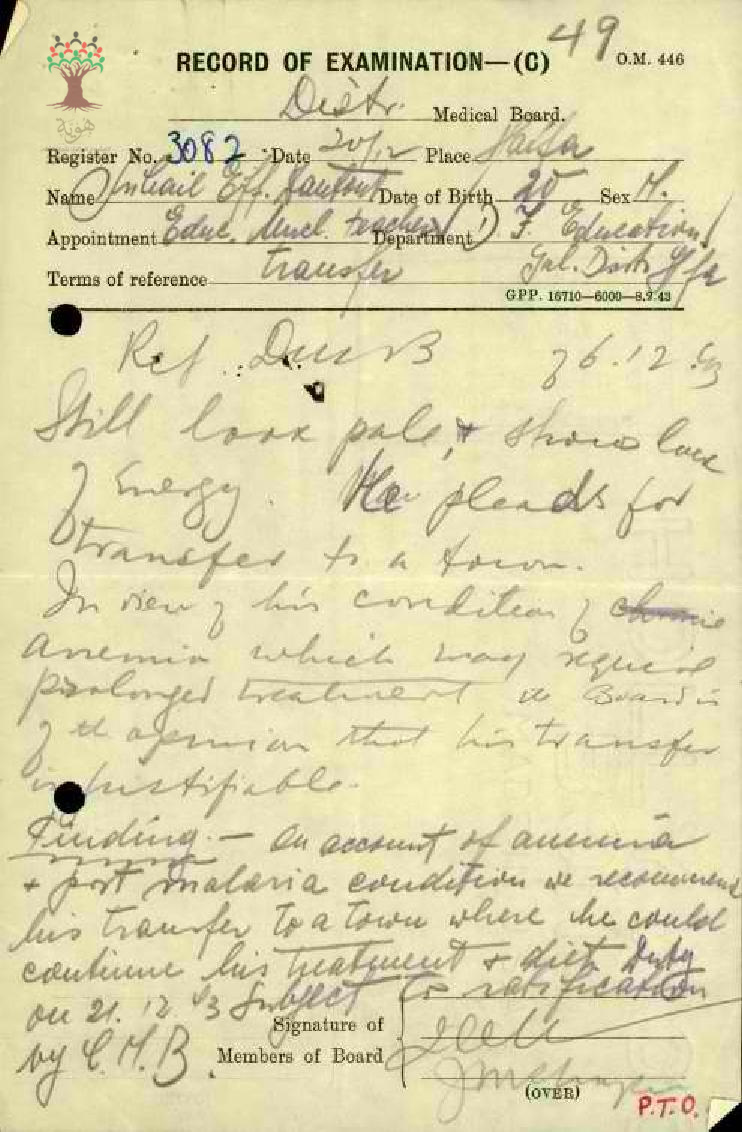 49
RECORD OF EXAMINATION—(C) O.M. 446
Distr. Medical Board.
هوية
Register No. 3082 Date 20/12 Place Haifa
Name Eff. Date of Birth 20 Sex M.
Appointment Educ. teacher Department F. Education
Terms of reference transfer Gal. Distr.
GPP. 16710—6000—8.9.43
Ref. B 6.12.43
Still look pale, & shows lack
of Energy. He pleads for
transfer to a town.
In view of his condition of chronic
Anemia which may require
prolonged treatment the Board is
of the opinion that his transfer
is justifiable.
Finding.— On account of anemia
+ post malaria condition we recommend
his transfer to a town where he could
continue his treatment + diet. Duty
on 21.12.43 Subject to ratification
by C.M.B.
Signature of
Members of Board
(OVER)
P.T.O.